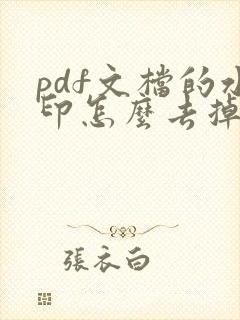 pdf文檔的水
印怎麼去掉
張衣白